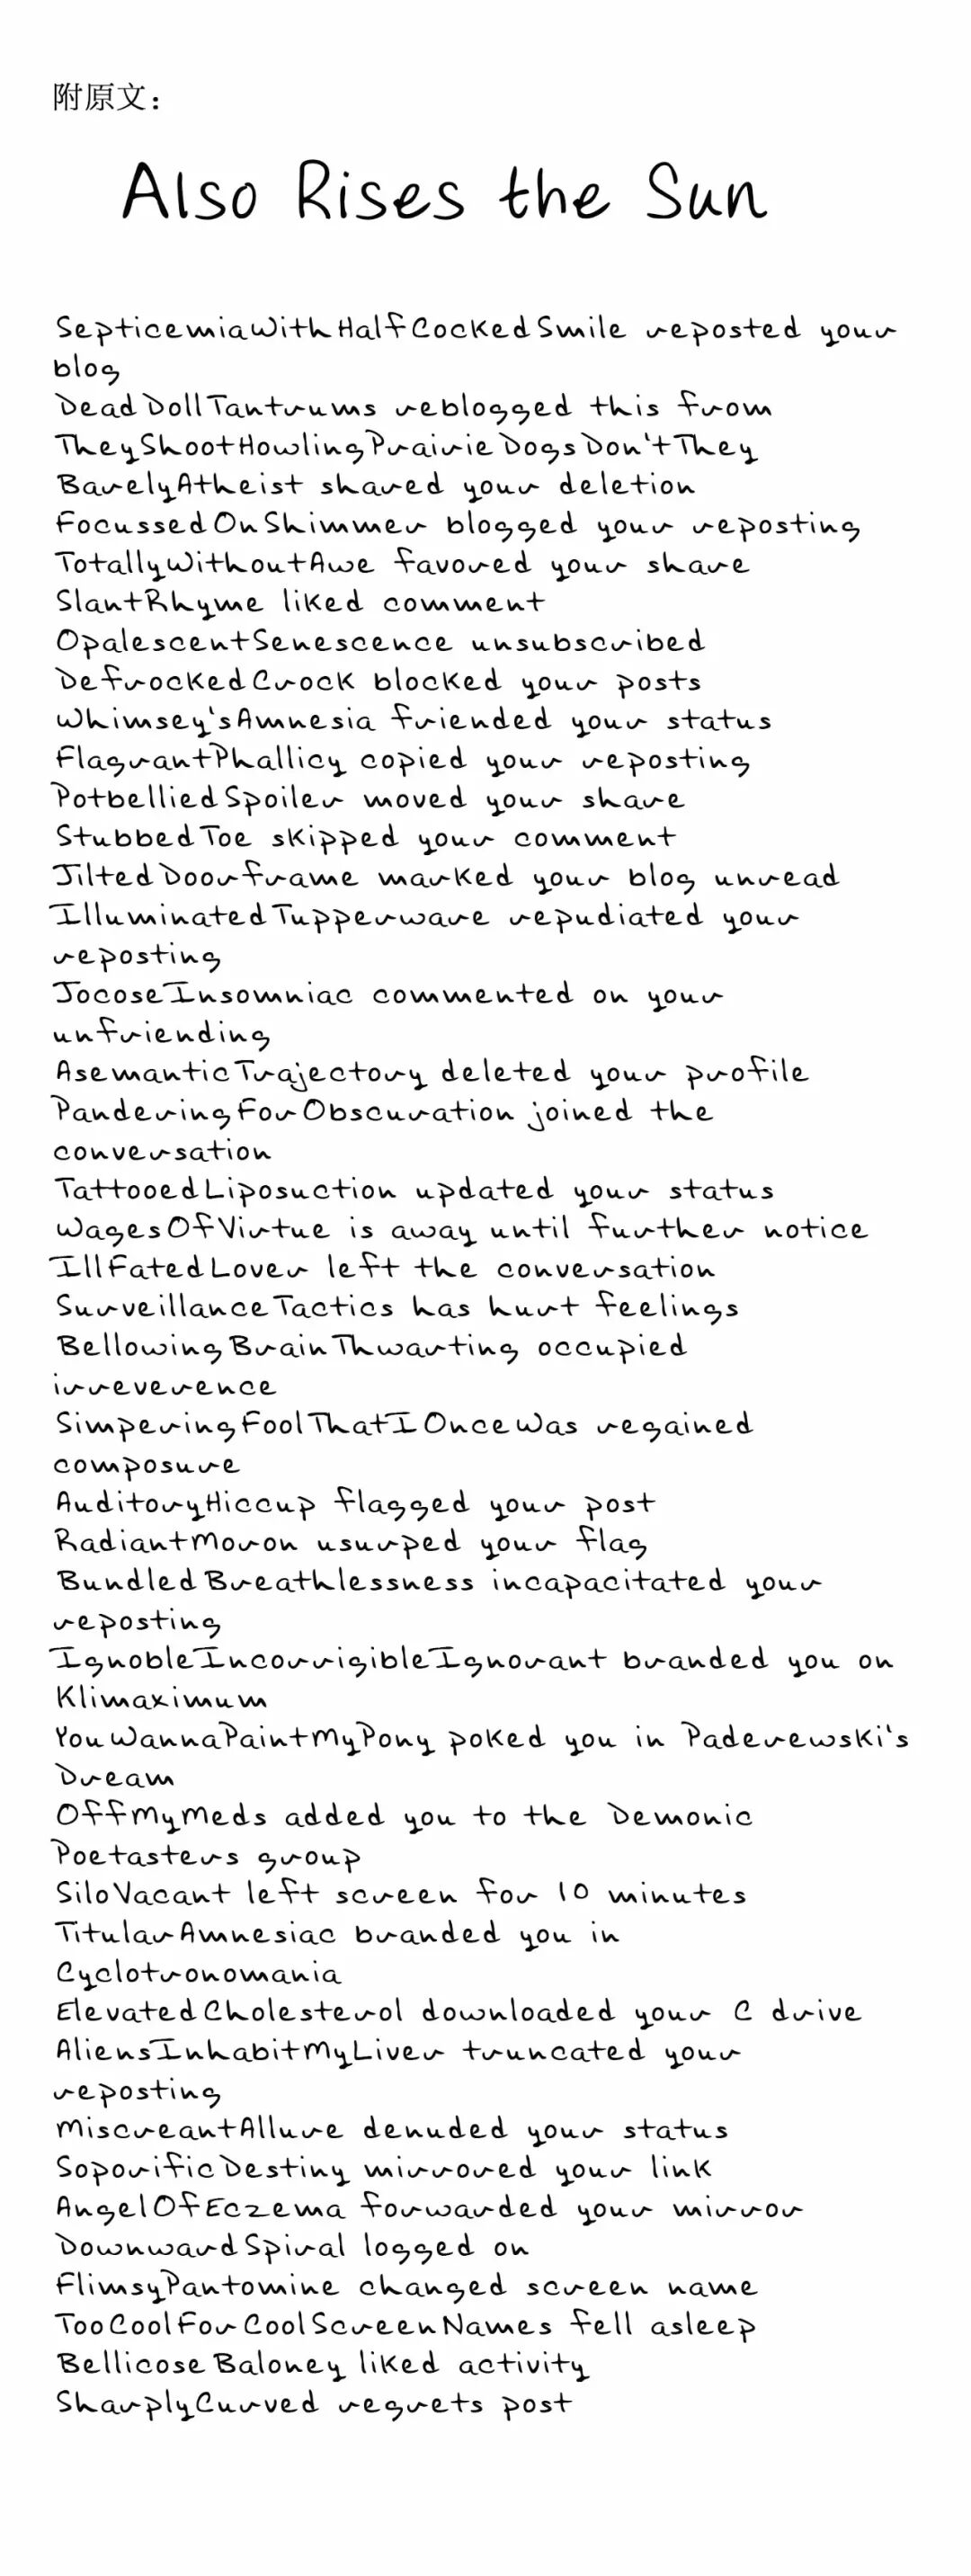 附原文：
Also Rises the Sun
SepticemiaWithHalfCockedSmile reposted your
blog
DeadDollTantrums reblogged this from
TheyShootHowlingPrairieDogsDon'tThey
BarelyAtheist shared your deletion
FocussedOnShimmer blogged your reposting
TotallyWithoutAwe favored your share
SlantRhyme liked comment
OpalescentSenescence unsubscribed
DefrockedCrock blocked your posts
Whimsey'sAmnesia friended your status
FlagrantPhallicy copied your reposting
PotbelliedSpoiler moved your share
StubbedToe skipped your comment
JiltedDoorframe marked your blog unread
IlluminatedTupperware repudiated your
reposting
JocoseInsomniac commented on your
unfriending
AsemanticTrajectory deleted your profile
PanderingForObscuration joined the
conversation
TattooedLiposuction updated your status
WagesOfVirtue is away until further notice
IllFatedLover left the conversation
SurveillanceTactics has hurt feelings
BellowingBrainThwarting occupied
irreverence
SimperingFoolThatIOnceWas regained
composure
AuditoryHiccup flagged your post
RadiantMoron usurped your flag
BundledBreathlessness incapacitated your
reposting
IgnobleIncorrigibleIgnorant branded you on
Klimaximum
YouWannaPaintMyPony poked you in Paderewski's
Dream
OffMyMeds added you to the Demonic
Poetasters group
SiloVacant left screen for 10 minutes
TitularAmnesiac branded you in
Cyclotronomania
ElevatedCholesterol downloaded your C drive
AliensInhabitMyLiver truncated your
reposting
MiscreantAllure denuded your status
SoporificDestiny mirrored your link
AngelOfEczema forwarded your mirror
DownwardSpiral logged on
FlimsyPantomine changed screen name
TooCoolForCoolScreenNames fell asleep
BellicoseBaloney liked activity
SharplyCurved regrets post